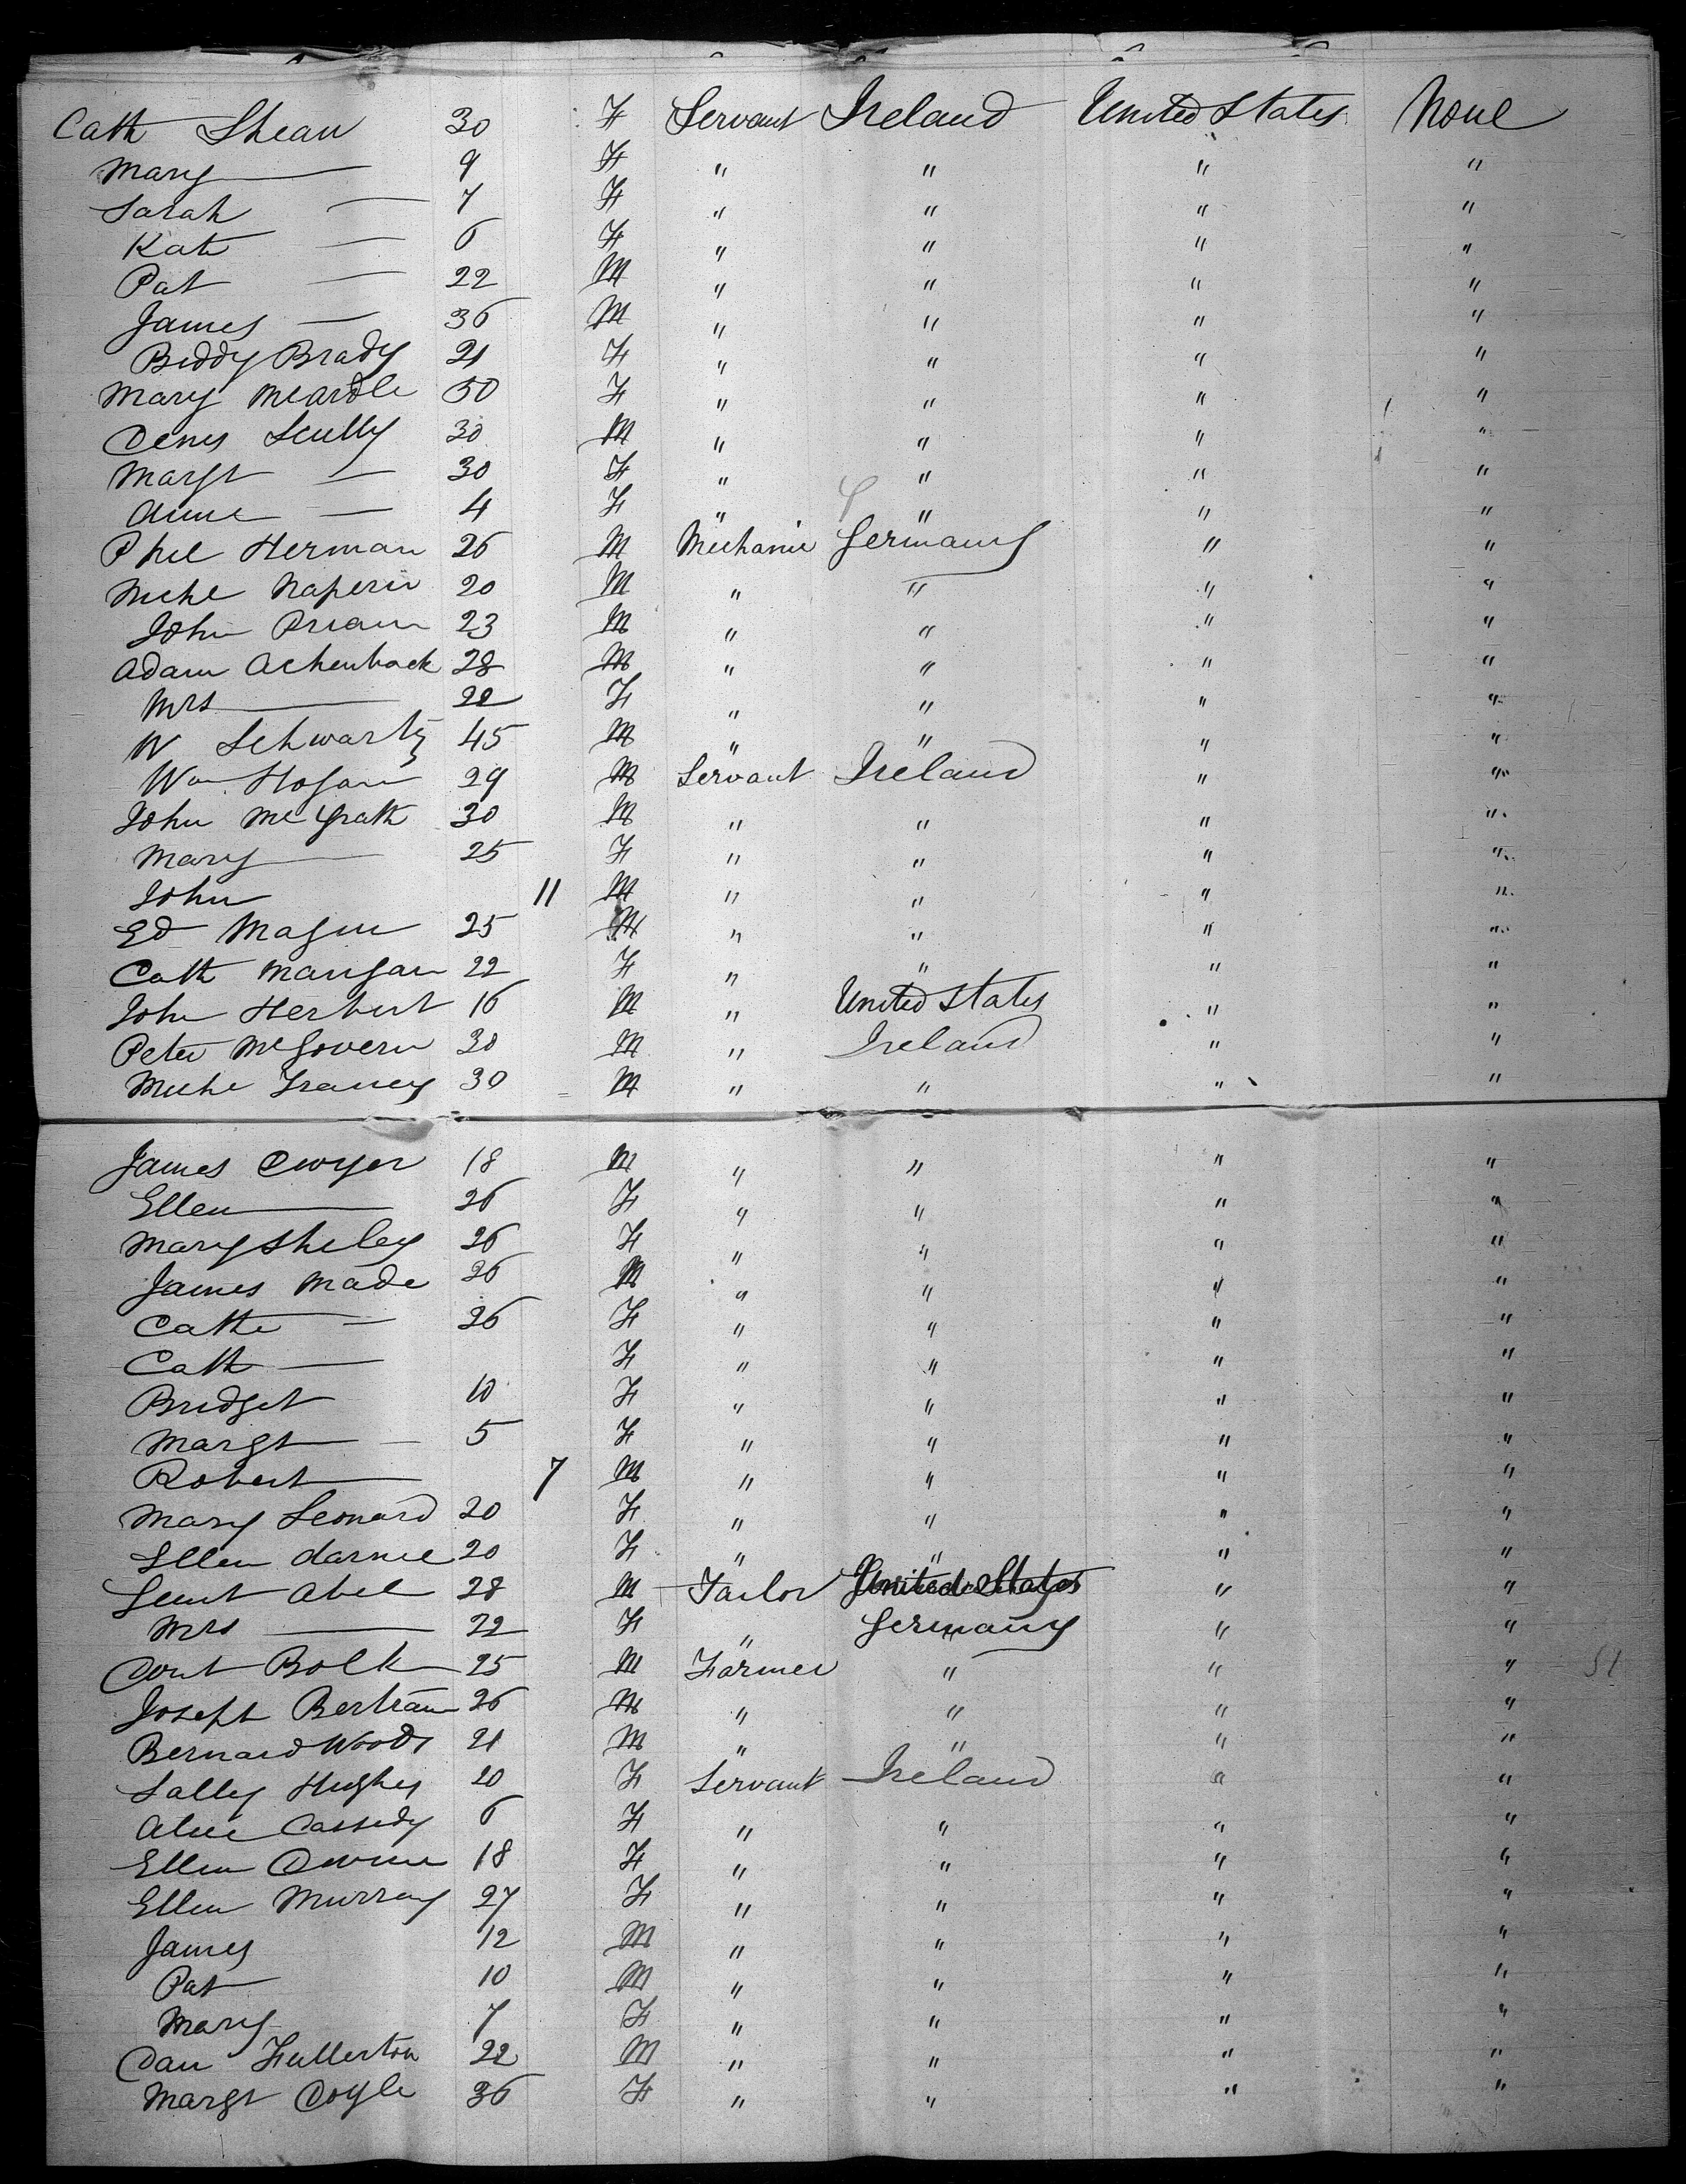 Cath Shean 30 F Servant Ireland United States None
Mary — 9 F " " " "
Sarah — 7 F " " " "
Kate — 6 F " " " "
Pat — 22 M " " " "
James — 36 M " " " "
Biddy Brady 21 F " " " "
Mary McArdle 50 F " " " "
Denis Scully 30 M " " " "
Margt — 30 F " " " "
Anne — 4 F " " " "
Phil Herman 26 M Mechanic Germany " "
Mche 20 M " " " "
John 23 M " " " "
Adam Achenback 28 M " " " "
Mrs — 22 F " " " "
W Schwartz 45 M " " " "
Wm Hogan 29 M Servant Ireland " "
John McGrath 30 M " " " "
Mary — 25 F " " " "
John 11 M " " " "
Ed 25 M " " " "
Cath Mangan 22 F " " " "
John Herbert 16 M " United States " "
Peter McGovern 30 M " Ireland " "
Miche 30 M " " " "
James Dwyer 18 M " " " "
Ellen — 26 F " " " "
Mary 26 F " " " "
James Made 26 M " " " "
Cathe — 26 F " " " "
Cath — F " " " "
Bridget 10 F " " " "
Margt — 5 F " " " "
Robert — 7 M " " " "
Mary Leonard 20 F " " " "
Ellen 20 F " " " "
Abel 28 M Tailor United States " "
Mrs — 22 F " Germany " "
25 M Farmer " " "
Joseph Bertram 26 M " " " "
Bernard Woods 21 M " " " "
Sally Hughes 20 F Servant Ireland " "
Alice Cassedy 6 F " " " "
Ellen 18 F " " " "
Ellen Murray 27 F " " " "
James 12 M " " " "
Pat 10 M " " " "
Mary 7 F " " " "
Dan Fullerton 22 M " " " "
Margt Coyle 36 F " " " "